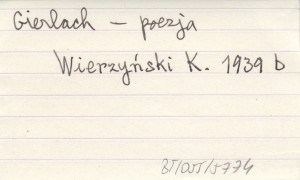 Gierlach – poezja
Wierzyński K. 1939 b
BJ/OJT/5774